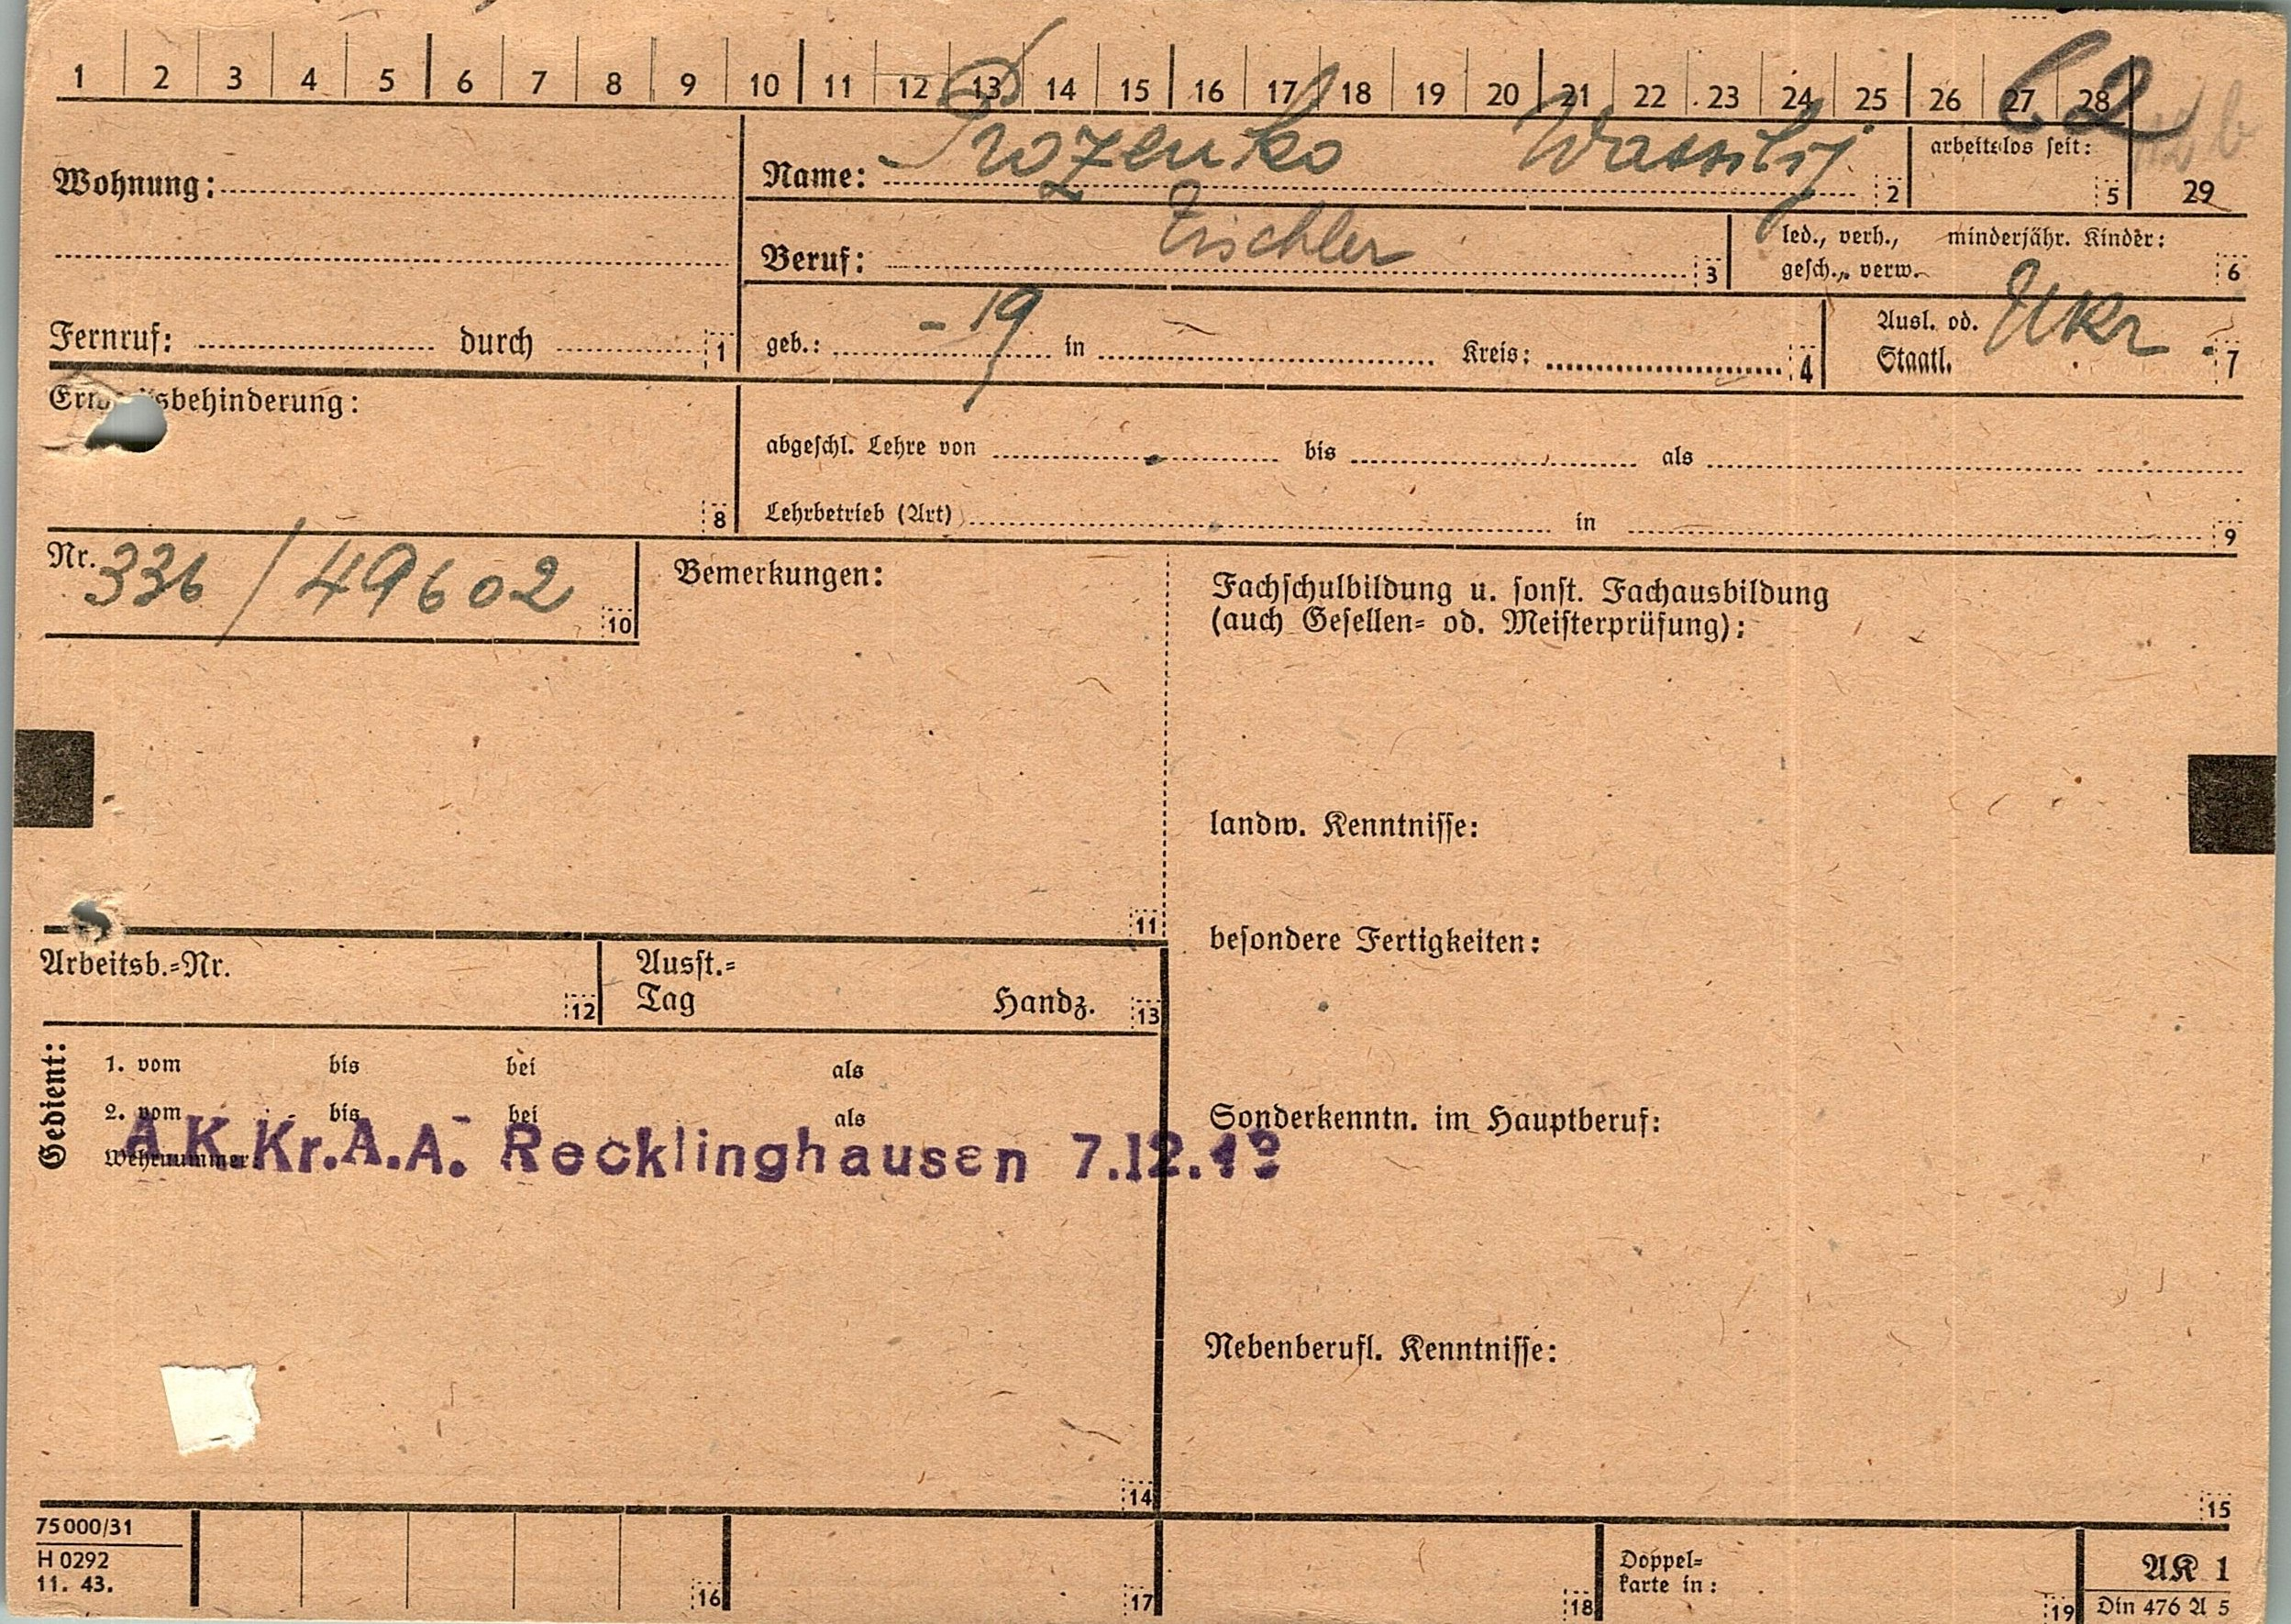 1 2 3 4 5 6 7 8 9 10 11 12 13 14 15 16 17 18 19 20 21 22 23 24 25 26 27 28 29
62
12 b
Wohnung:
Name: Prozenko Wassilij 2
arbeitslos seit: 5
Beruf: Tischler 3
led., verh., minderjähr. Kinder:
gesch., verw. 6
Fernruf: durch 1
geb.: - 19 in Kreis: 4
Ausl. od.
Staatl. Ukr. 7
Erwerbsbehinderung: 8
abgeschl. Lehre von bis als
Lehrbetrieb (Art) in 9
Nr. 336 / 49602 10
Bemerkungen: 11
Fachschulbildung u. sonst. Fachausbildung
(auch Gesellen- od. Meisterprüfung):
landw. Kenntnisse:
besondere Fertigkeiten:
Arbeitsb.-Nr. 12
Ausst.-
Tag Handz. 13
Gedient:
1. vom bis bei als
2. vom bis bei als
Wehrnummer:
A K Kr.A.A. Recklinghausen 7.12.
Sonderkenntn. im Hauptberuf:
Nebenberufl. Kenntnisse:
14
15
75000/31
H 0292
11. 43.
16
17
18
Doppel-
karte in: 19
AK 1
Din 476 A 5